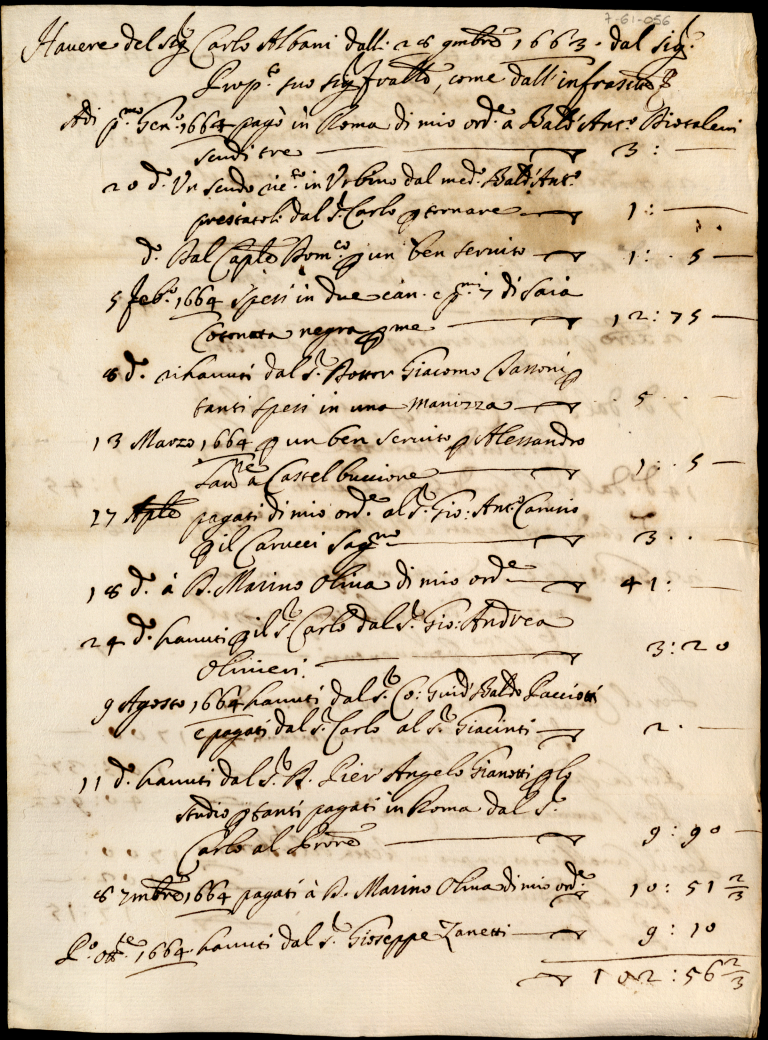 7-61-056
Havere del Sig.r Carlo Albani dalli 28 9mbre 1663. dal Sig.r
suo Sig.r Frallo, come dall'infrascritto
Adi p.mo Gen.o 1664 pagò in Roma di mio ord.e a Bald. Ant.o
scudi tre — 3 : —
20 d.o Un scudo ric.to in Urbino dal med.o Bald. Ant.o
prestatoli dal S.r Carlo p tornare — 1 : —
d.o Dal Cap.lo Dom.co p un ben servito — 1 : . 5 —
5 Feb.o 1664 spesi in due can. e p.mi 7 di saia
Cotonata negra p me — 12 : 75 —
8 d.o rihavuti dal S.r Dottor Giacomo Bassoni p
tanti spesi in una manizza — 5 . . —
13 Marzo 1664 p un ben servito p Alessandro
a Castel buccione — 1 : . 5 —
17 Aple pagati di mio ord.e al S.r Gio: Ant.o
p il Carucci — 3 . . —
18 d.o à D. Marino Oliva di mio ord.e — 41 : —
24 d.o havuti p il S.r Carlo dal S.r Gio: Andrea
Olivieri. — 3 : 20
9 Agosto 1664 havuti dal S.r Co: Guid. Baldo Pacciotti
e pagati dal S.r Carlo al S.r Giacinti — 2 . —
11 d.o havuti dal S.r D. Pier Angelo Gianotti p lo
studio p tanti pagati in Roma dal S.r
Carlo al — 9 : 90 —
8 7mbre 1664 pagati à D. Marino Oliva di mio ord.e 10 : 51 2/3
P.o ott.e 1664 havuti dal S.r Gioseppe Zanetti — 9 : 10
— 102 : 56 2/3